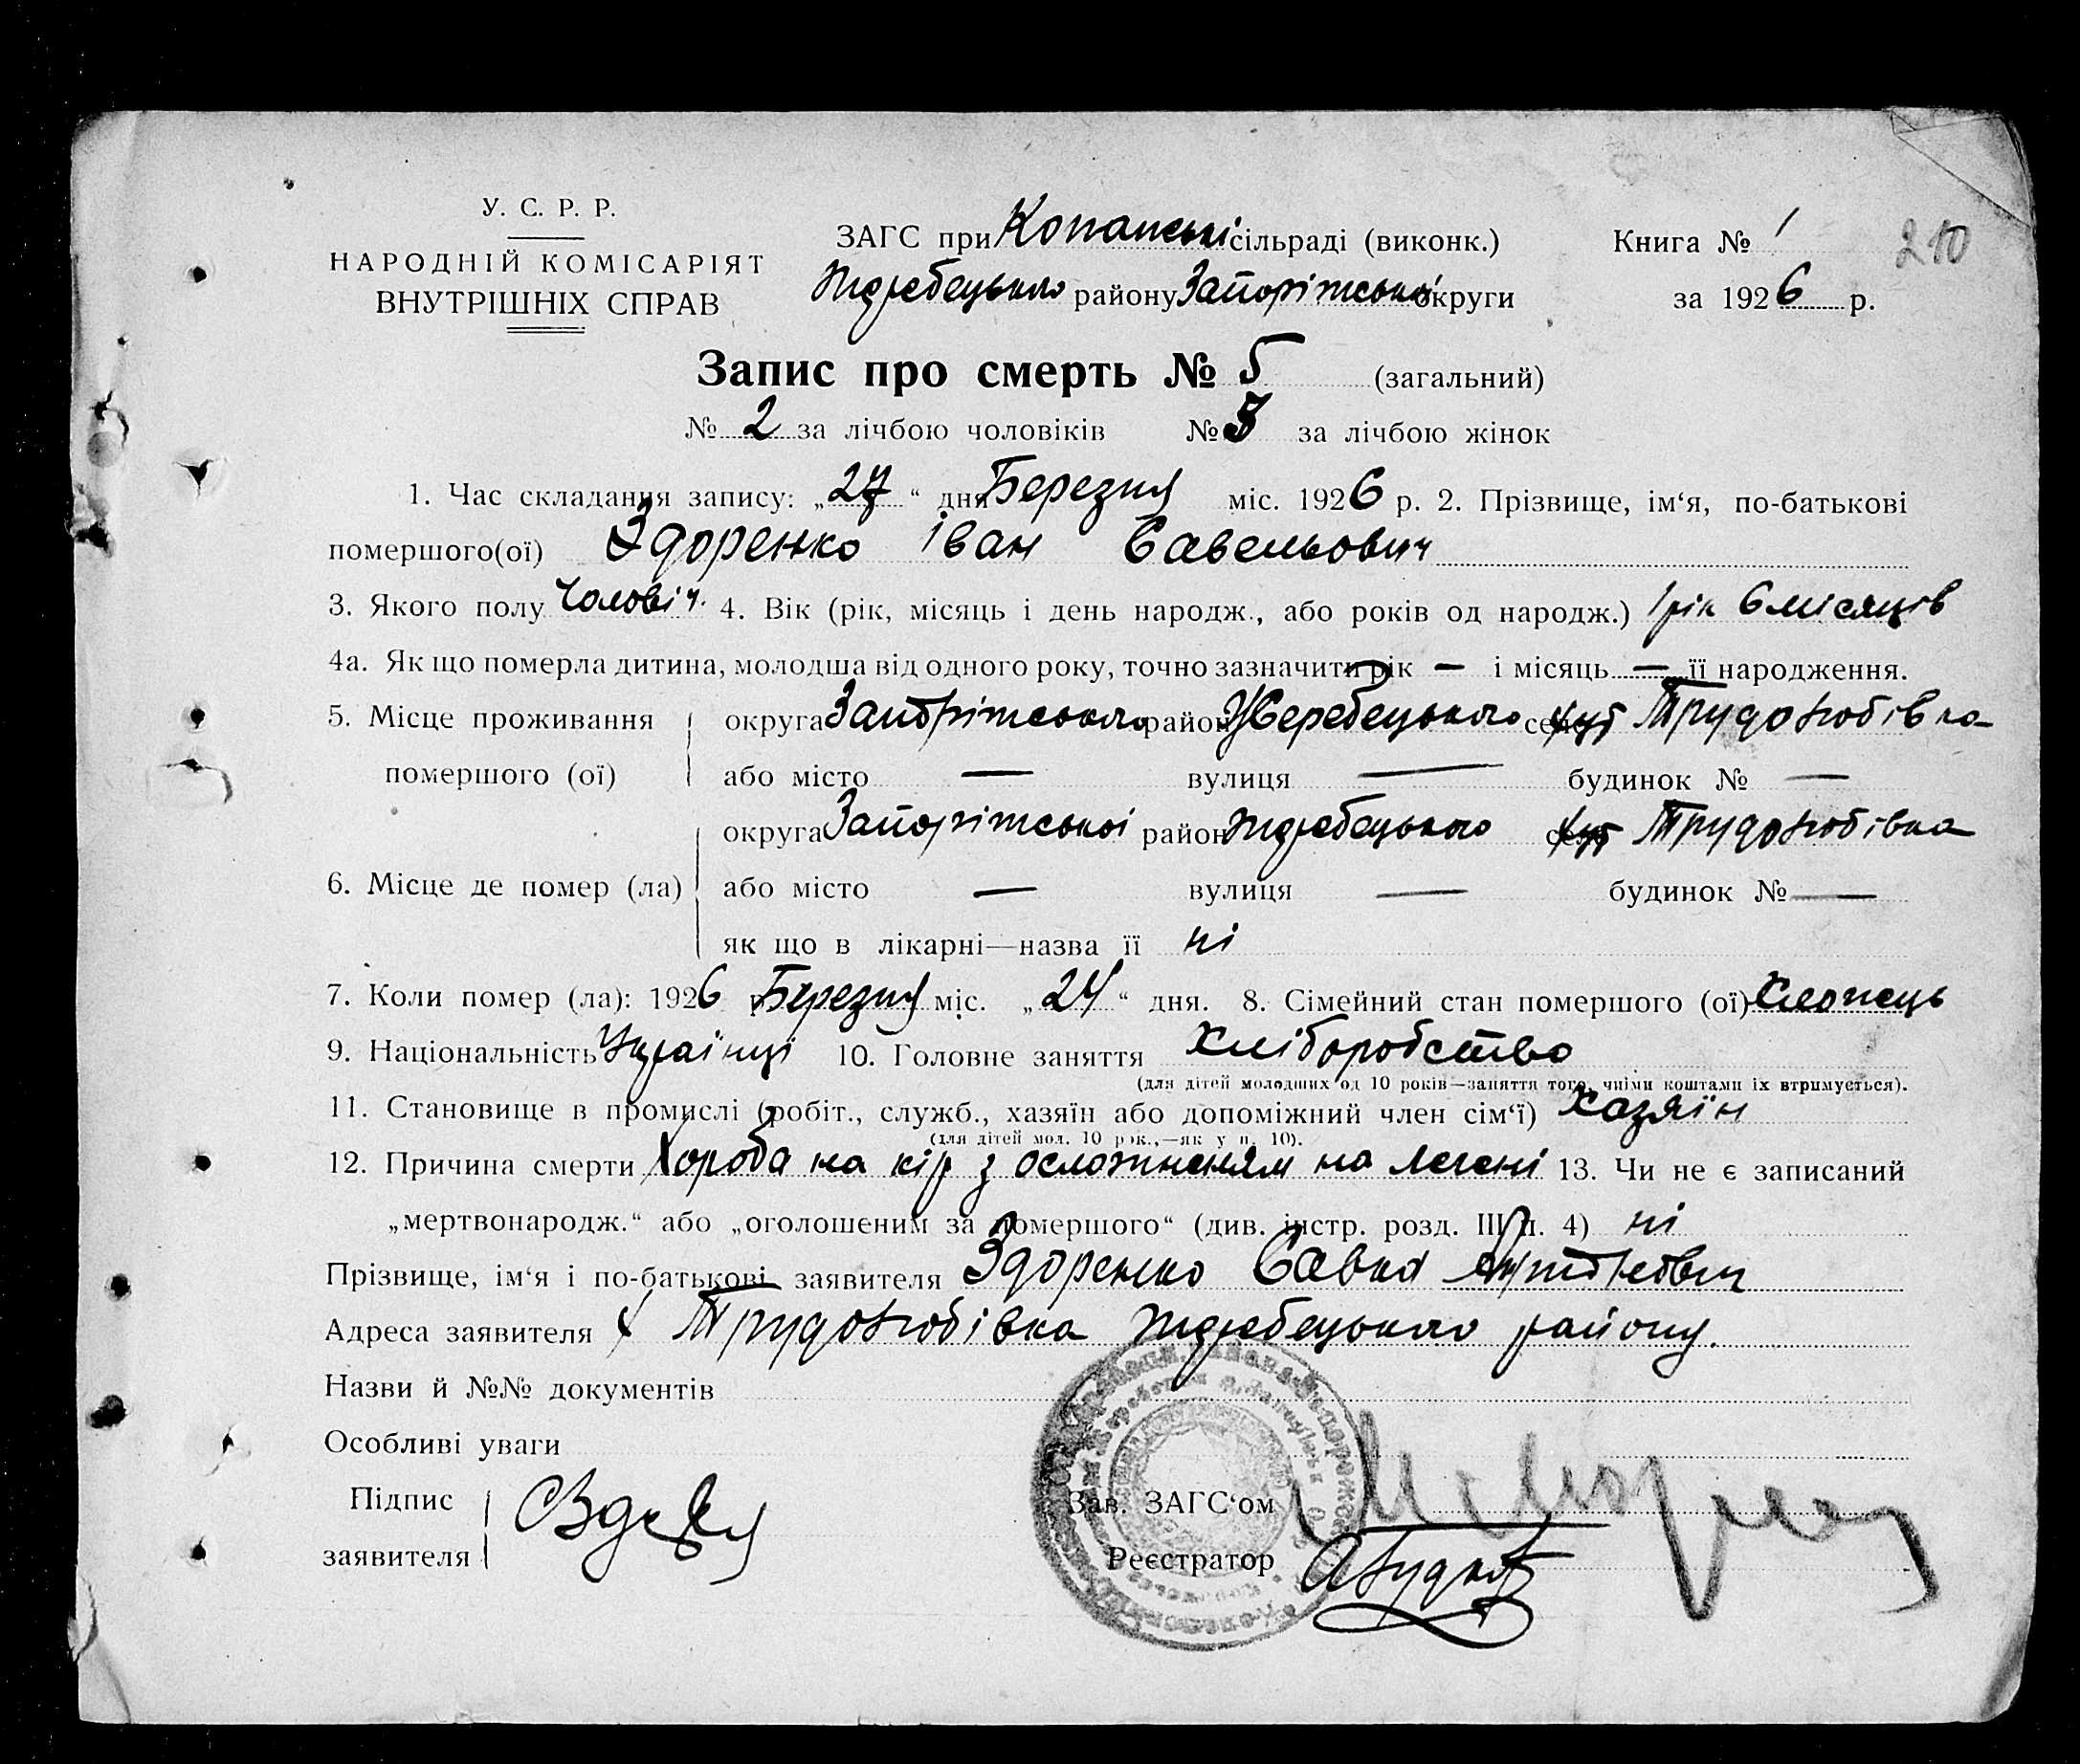 У. С. Р. Р.
НАРОДНІЙ КОМІСАРІЯТ
ВНУТРІШНІХ СПРАВ
ЗАГС при Копанські сільраді (виконк.)
Жеребецького району Запоріжської округи
Книга № 1
210
за 1926 р.
Запис про смерть № 5 (загальний)
№ 2 за лічбою чоловіків № 3 за лічбою жінок
1. Час складання запису: „27“ дня Березня міс. 1926 р. 2. Прізвище, ім‘я, по-батькові
помершого(ої) Здоренко Іван Савельович
3. Якого полу Чоловіч. 4. Вік (рік, місяць і день народж., або років од народж.) 1 рік 6 місяців
4а. Як що померла дитина, молодша від одного року, точно зазначити рік — і місяць — її народження.
5. Місце проживання округа Запоріжського район Жеребецького село хут Трудолюбівка
помершого (ої) або місто — вулиця — будинок № —
округа Запоріжської район Жеребецького село хут Трудолюбівка
6. Місце де помер (ла) або місто — вулиця — будинок № —
як що в лікарні—назва її ні
7. Коли помер (ла): 1926 р. Березня міс. „24“ дня. 8. Сімейний стан помершого (ої) Хлопець
9. Національність Українці 10. Головне заняття Хліборобство
(для дітей молодших од 10 років—заняття того, чиїми коштами їх втримується).
11. Становище в промислі (робіт., служб., хазяїн або допоміжний член сім‘ї) Хазяїн
(для дітей мол. 10 рок.,—як у п. 10).
12. Причина смерти Хороба на кір з осложненям на легені 13. Чи не є записаний
„мертвонародж.“ або „оголошеним за помершого“ (див. інстр. розд. III п. 4) ні
Прізвище, ім‘я і по-батькові заявителя Здоренко Савка
Адреса заявителя х Трудолюбівка Жеребецького району.
Назви й №№ документів
Особливі уваги
Підпис
заявителя
Зав. ЗАГС‘ом
Реєстратор